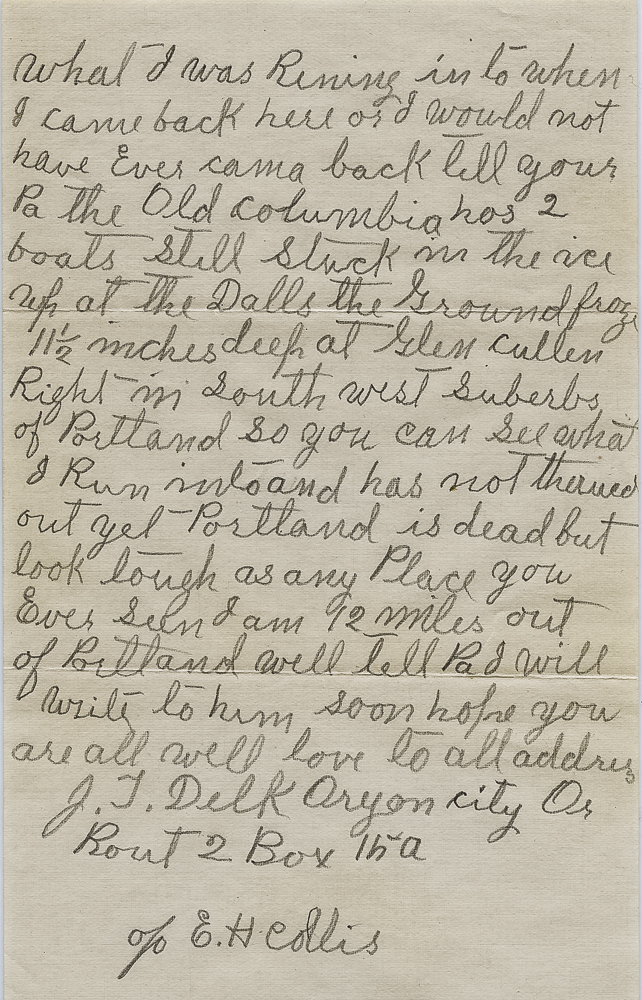 what I was Rining in to when
I came back here or I would not
have Ever cama back tell your
Pa the Old columbia hos 2
boats Still Stuck in the ice
up at the Dalls the Ground froze
11 1/2 inches deep at Glen cullen
Right in South west Suberbs
of Portland So you can See what
I Run into and has not thawed
out yet Portland is dead but
look tough as any Place you
Ever Seen I am 12 miles out
of Portland well tell Pa I will
write to him soon hope you
are all well love to all addres
J. T. Delk Oregon city Or
Rout 2 Box 15 a
c/o E. H Collis